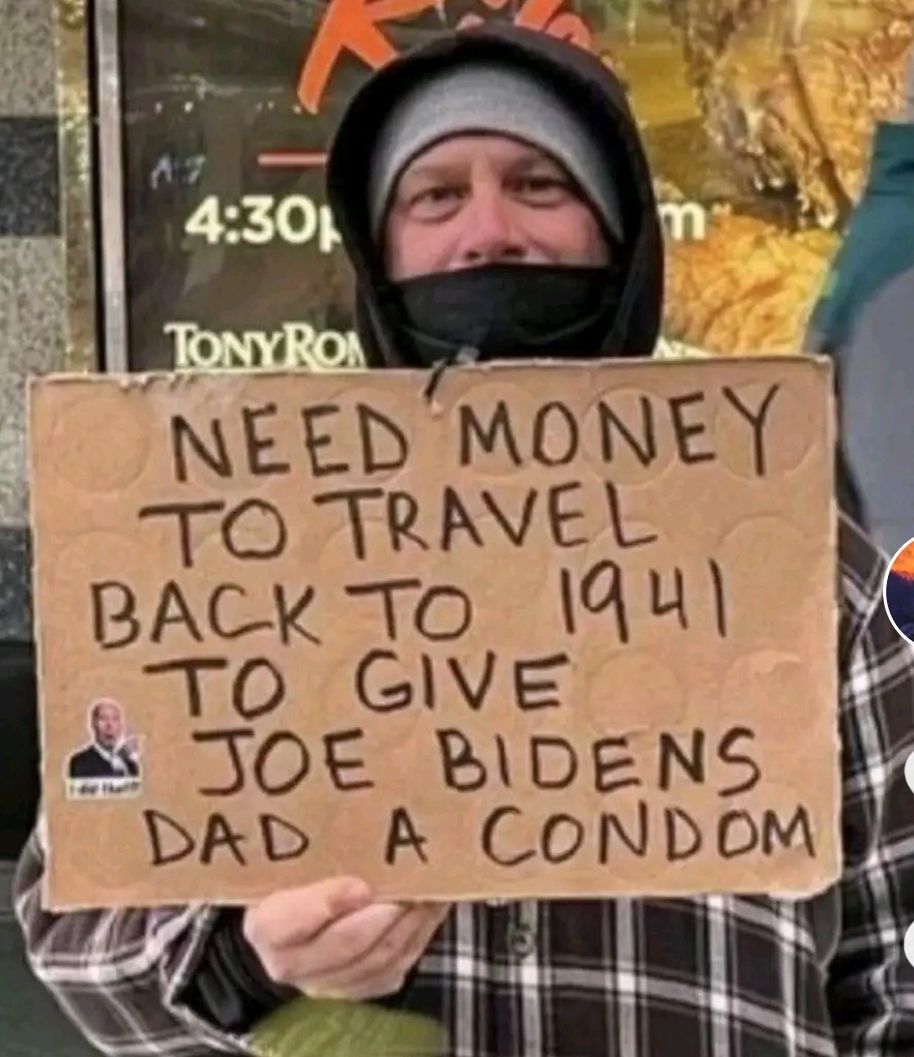 4:30p
m
TONY ROM
NEED MONEY
TO TRAVEL
BACK TO 1941
TO GIVE
JOE BIDENS
DAD A CONDOM
I did that!